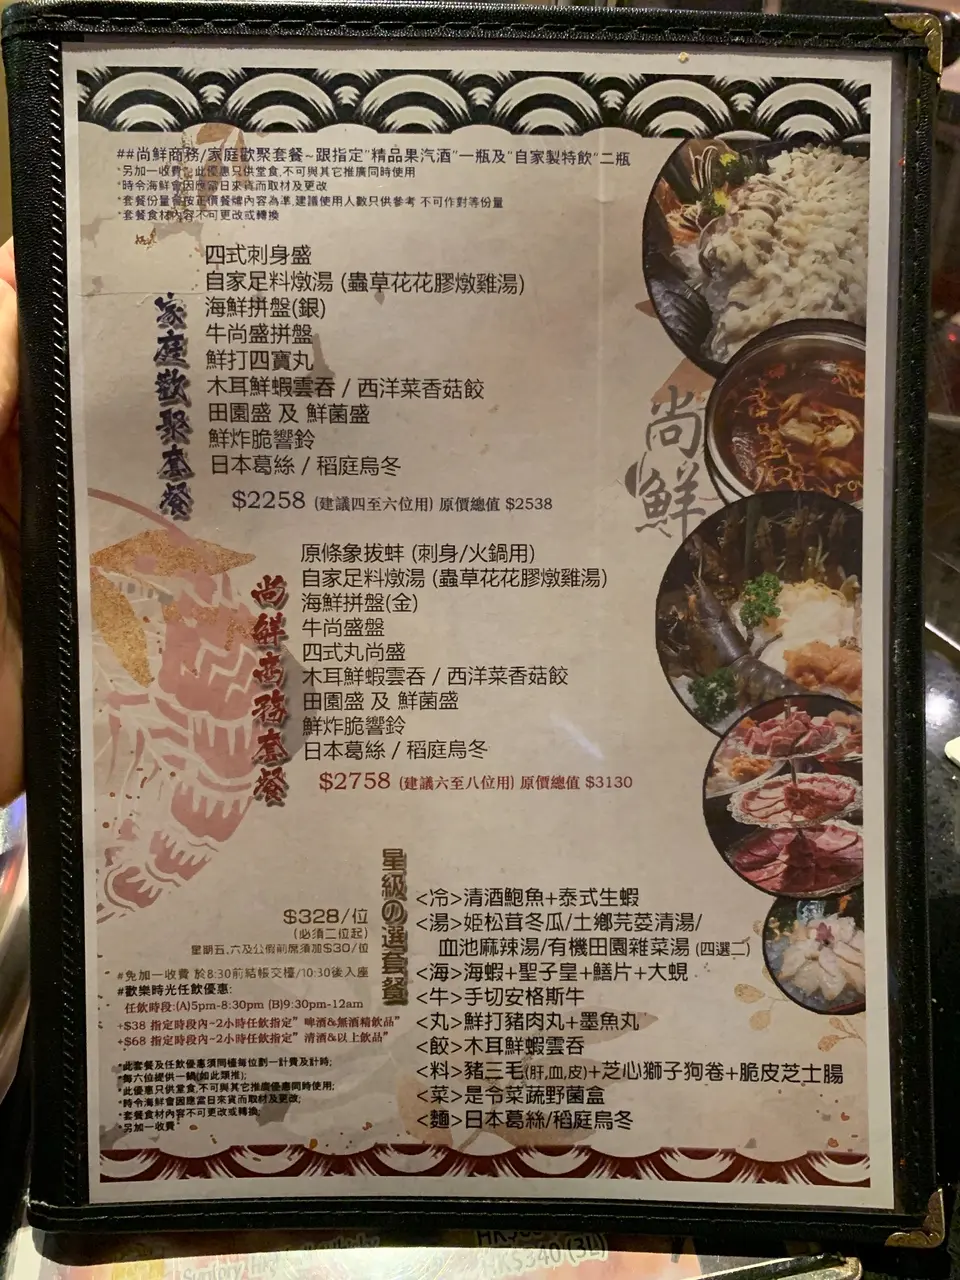 ##尚鮮商務/家庭歡聚套餐~跟指定"精品果汽酒"一瓶及"自家製特飲"二瓶
*另加一收費*此優惠只供堂食,不可與其它推廣同時使用
*時令海鮮會因應當日來貨而取材及更改
*套餐份量會按正價餐牌內容為準,建議使用人數只供參考 不可作對等份量
*套餐食材內容不可更改或轉換
家庭歡聚套餐
四式刺身盛
自家足料燉湯 (蟲草花花膠燉雞湯)
海鮮拼盤(銀)
牛尚盛拼盤
鮮打四寶丸
木耳鮮蝦雲吞 / 西洋菜香菇餃
田園盛 及 鮮菌盛
鮮炸脆響鈴
日本葛絲 / 稻庭烏冬
$2258 (建議四至六位用) 原價總值 $2538
尚鮮
尚鮮商務套餐
原條象拔蚌 (刺身/火鍋用)
自家足料燉湯 (蟲草花花膠燉雞湯)
海鮮拼盤(金)
牛尚盛盤
四式丸尚盛
木耳鮮蝦雲吞 / 西洋菜香菇餃
田園盛 及 鮮菌盛
鮮炸脆響鈴
日本葛絲 / 稻庭烏冬
$2758 (建議六至八位用) 原價總值 $3130
星級の選套餐
$328/位
(必須二位起)
星期五,六及公假前席須加$30/位
#免加一收費 於8:30前結帳交檯/10:30後入座
#歡樂時光任飲優惠:
任飲時段:(A)5pm-8:30pm (B)9:30pm-12am
+$38 指定時段內~2小時任飲指定"啤酒&無酒精飲品"
+$68 指定時段內~2小時任飲指定"清酒&以上飲品"
*此套餐及任飲優惠須同檯每位劃一計費及計時;
*每六位提供一鍋(如此類推);
*此優惠只供堂食,不可與其它推廣優惠同時使用;
*時令海鮮會因應當日來貨而取材及更改;
*套餐食材內容不可更改或轉換;
*另加一收費*
<冷>清酒鮑魚+泰式生蝦
<湯>姬松茸冬瓜/土鄉芫荽清湯/
血池麻辣湯/有機田園雜菜湯 (四選二)
<海>海蝦+聖子皇+鱔片+大蜆
<牛>手切安格斯牛
<丸>鮮打豬肉丸+墨魚丸
<餃>木耳鮮蝦雲吞
<料>豬三毛(肝,血,皮)+芝心獅子狗卷+脆皮芝士腸
<菜>是令菜蔬野菌盒
<麵>日本葛絲/稻庭烏冬
HK$340 (3L)